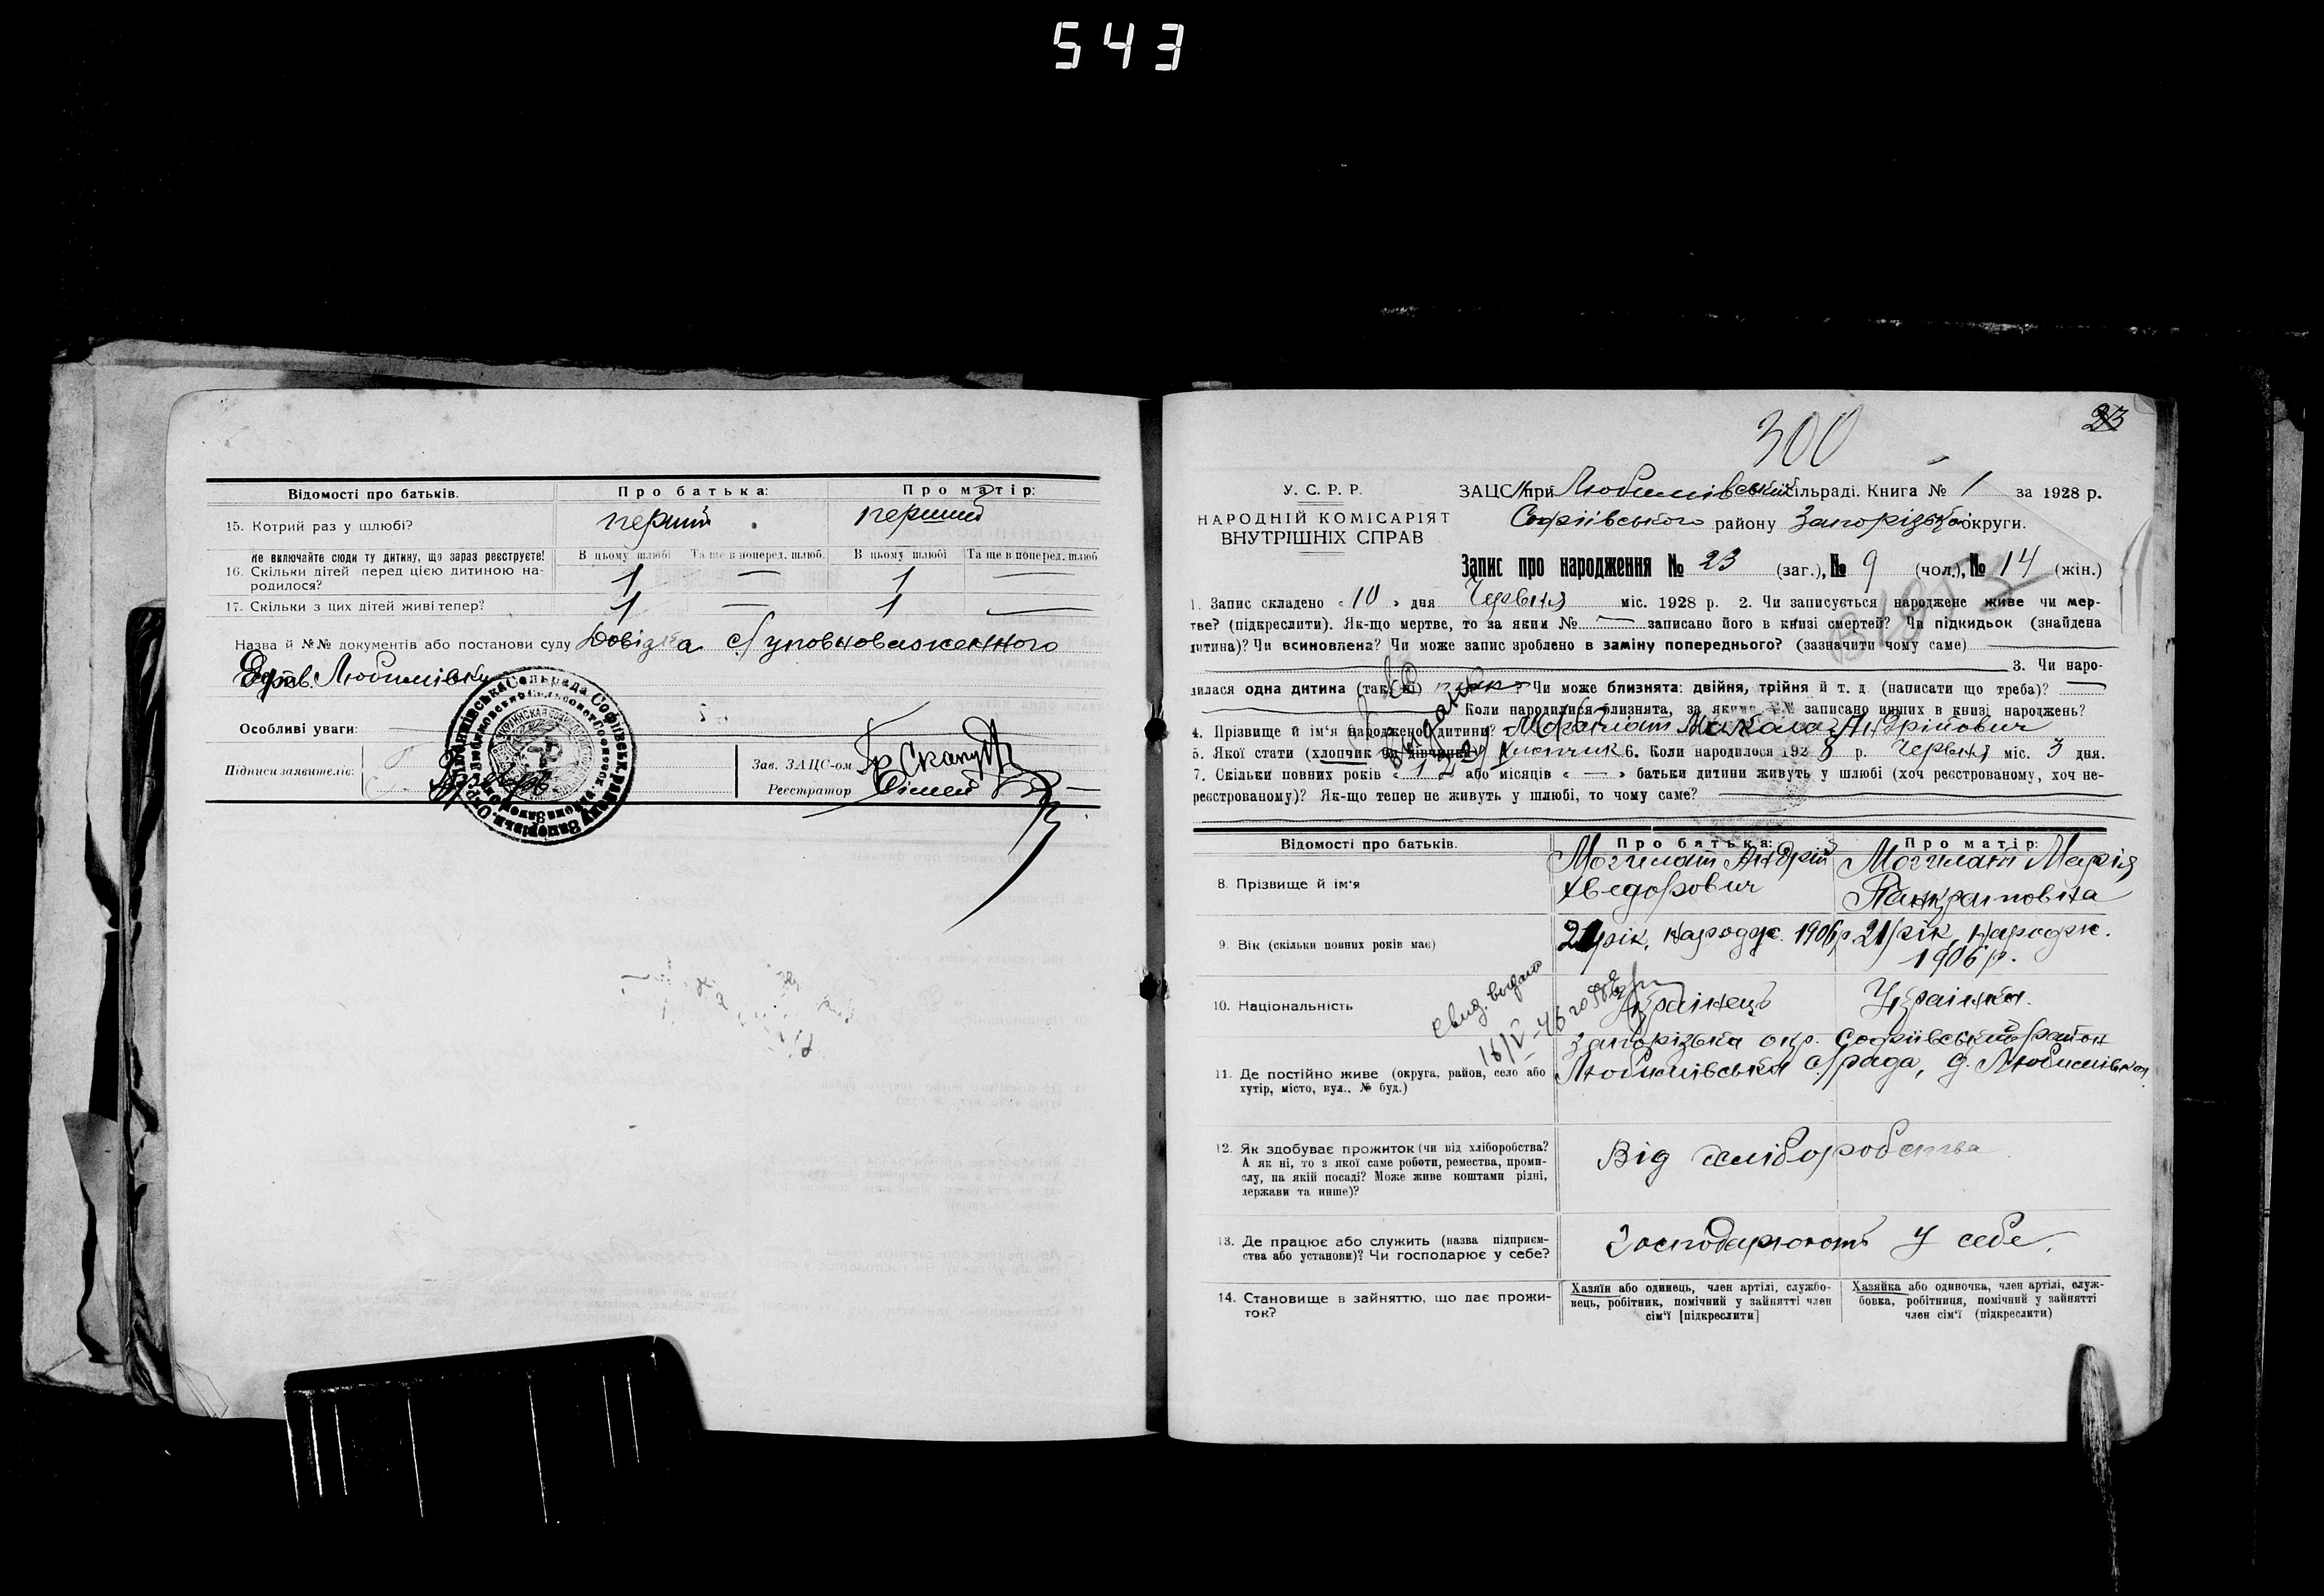 543
Відомості про батьків.
Про батька:
Про матір:
15. Котрий раз у шлюбі?
перший
перший
Не включайте сюди ту дитину, що зараз реєструєте!
В цьому шлюбі
Та ще в поперед. шлюб.
В цьому шлюбі
Та ще в поперед. шлюб
16. Скільки дітей перед цією дитиною на-
родилося?
1
—
1
—
17. Скільки з цих дітей живі тепер?
1
—
1
—
Назва й №№ документів або постанови суду Довідка с/уповноваженного
Любимівки
Особливі уваги:
Підписи заявителів:
Зав. ЗАЦС-ом
Реєстратор
23
300
У. С. Р. Р.
НАРОДНІЙ КОМІСАРІЯТ
ВНУТРІШНІХ СПРАВ
ЗАЦС при Любимівській сільраді. Книга № 1 за 1928 р.
Софіівського району Запорізької округи.
Запис про народження № 23 (заг.), № 9 (чол.), № 14 (жін.)
1. Запис складено « 10 » дня Червня міс. 1928 р. 2. Чи записується народжене живе чи мер-
тве? (підкреслити). Як-що мертве, то за яким № — записано його в книзі смертей? Чи підкидьок (знайдена
дитина)? Чи всиновлена? Чи може запис зроблено в заміну попереднього? (зазначити чому саме)
3. Чи наро-
дилася одна дитина (так, ні) так? Чи може близнята: двійня, трійня й т. д (написати що треба)? —
Коли народилися близнята, за якими №№ записано инших в книзі народжень?
4. Прізвище й ім'я народженої дитини? Могилат Микола Андрійович
5. Якої стати (хлопчик чи дівчинка) Хлопчик 6. Коли народилося 1928 р. Червня міс. 3 дня.
7. Скільки повних років « 1 2 » або місяців « — » батьки дитини живуть у шлюбі (хоч реєстрованому, хоч не-
реєстрованому)? Як-що тепер не живуть у шлюбі, то чому саме?
Видано
Відомості про батьків.
Про батька:
Про матір:
8. Прізвище й ім'я
Могилат Андрій
Хведорович
Могилат Марія
Панкратовна
9. Вік (скільки повних років має)
21 рік, народж. 1906 р.
21 рік, народж.
1906 р.
свид. выдано
16/V-46
10. Національність
Українець
Українка.
11. Де постійно живе (округа, район, село або
хутір, місто, вул., № буд.)
Запорізька окр. Софіівський район
Любимівська с/рада, д. Любимівка
12. Як здобуває прожиток (чи від хліборобства?
А як ні, то з якої саме роботи, ремества, проми-
слу, на якій посаді? Може живе коштами рідні,
держави та инше)?
Від хліборобства
13. Де працює або служить (назва підприєм-
ства або установи)? Чи господарює у себе?
Господарюють у себе.
14. Становище в зайняттю, що дає прожи-
ток?
Хазяїн або одинець, член артілі, службо-
вець, робітник, помічний у зайнятті член
сім'ї [підкреслити]
Хазяйка або одиночка, член артілі, служ-
бовка, робітниця, помічний у зайнятті
член сім'ї (підкреслити)